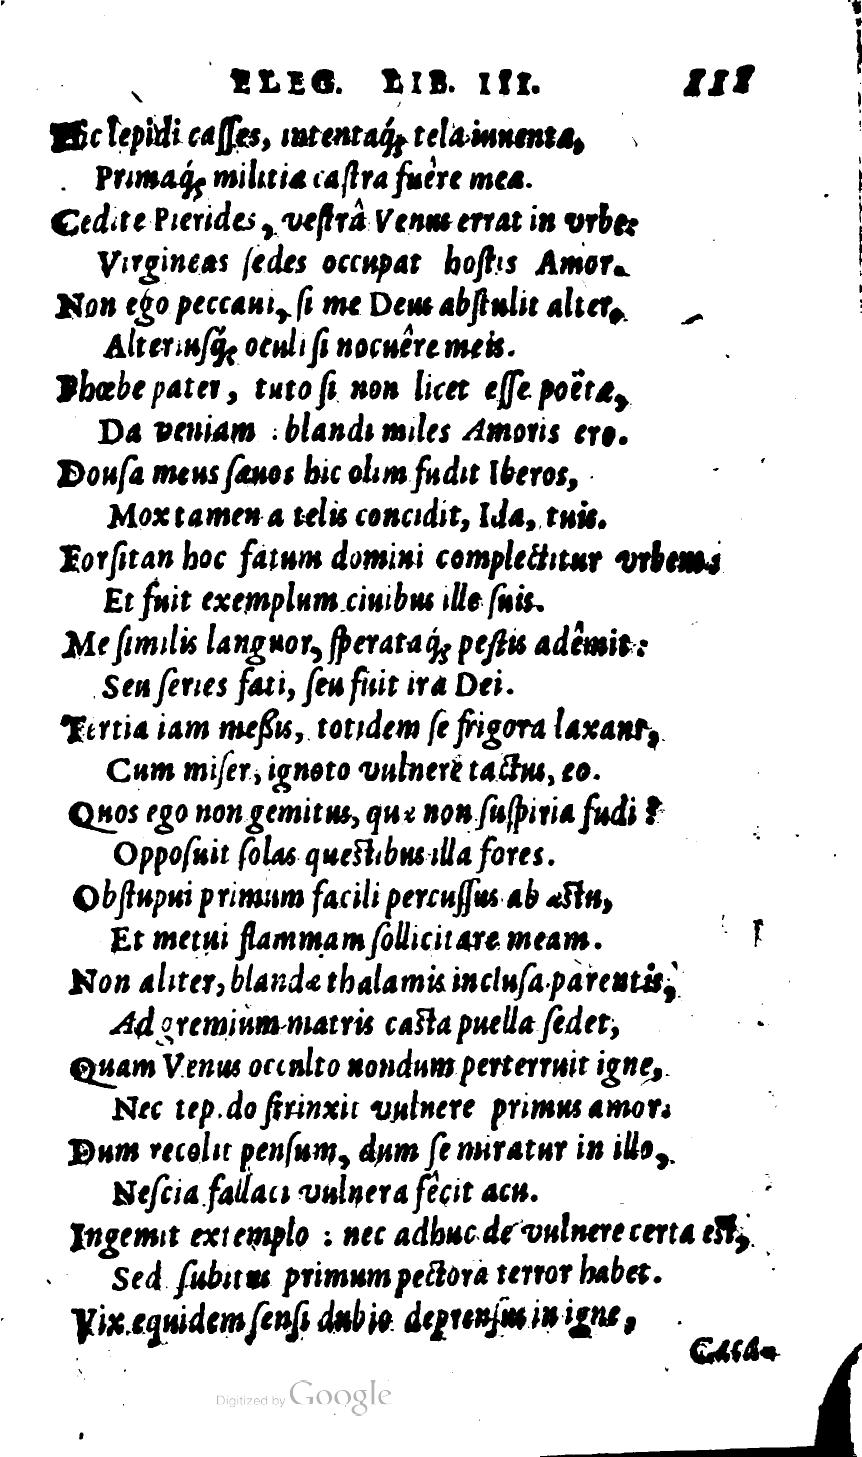 ELEG. LIB. III. 111
Hic lepidi casses, intentaq́; tela iuuenta,
Primaq́; militia castra fuêre mea.
Cedite Pierides, vestrâ Venus errat in vrbe:
Virgineas sedes occupat hostis Amor.
Non ego peccaui, si me Deus abstulit alter,
Alteriusq́; oculi si nocuêre meis.
Phœbe pater, tuto si non licet esse poëtæ,
Da veniam : blandi miles Amoris ero.
Dousa meus sæuos hic olim fudit Iberos,
Mox tamen a telis concidit, Ida, tuis.
Forsitan hoc fatum domini complectitur vrbem:
Et fuit exemplum ciuibus ille suis.
Me similis languor, sperataq́; pestis adêmit:
Seu series fati, seu fuit ira Dei.
Tertia iam messis, totidem se frigora laxant,
Cum miser, ignoto vulnere tactus, eo.
Quos ego non gemitus, quæ non suspiria fudi?
Opposuit solas questibus illa fores.
Obstupui primum facili percussus ab æstu,
Et metui flammam sollicitare meam.
Non aliter, blandæ thalamis inclusa parentis,
Ad gremium matris casta puella sedet,
Quam Venus occulto nondum perterruit igne,
Nec tepido strinxit vulnere primus amor:
Dum recolit pensum, dum se miratur in illo,
Nescia fallaci vulnera fêcit acu.
Ingemit extemplo : nec adhuc de vulnere certa est,
Sed subitus primum pectora terror habet.
Vix equidem sensi dubio deprensus in igne,
Digitized by Google